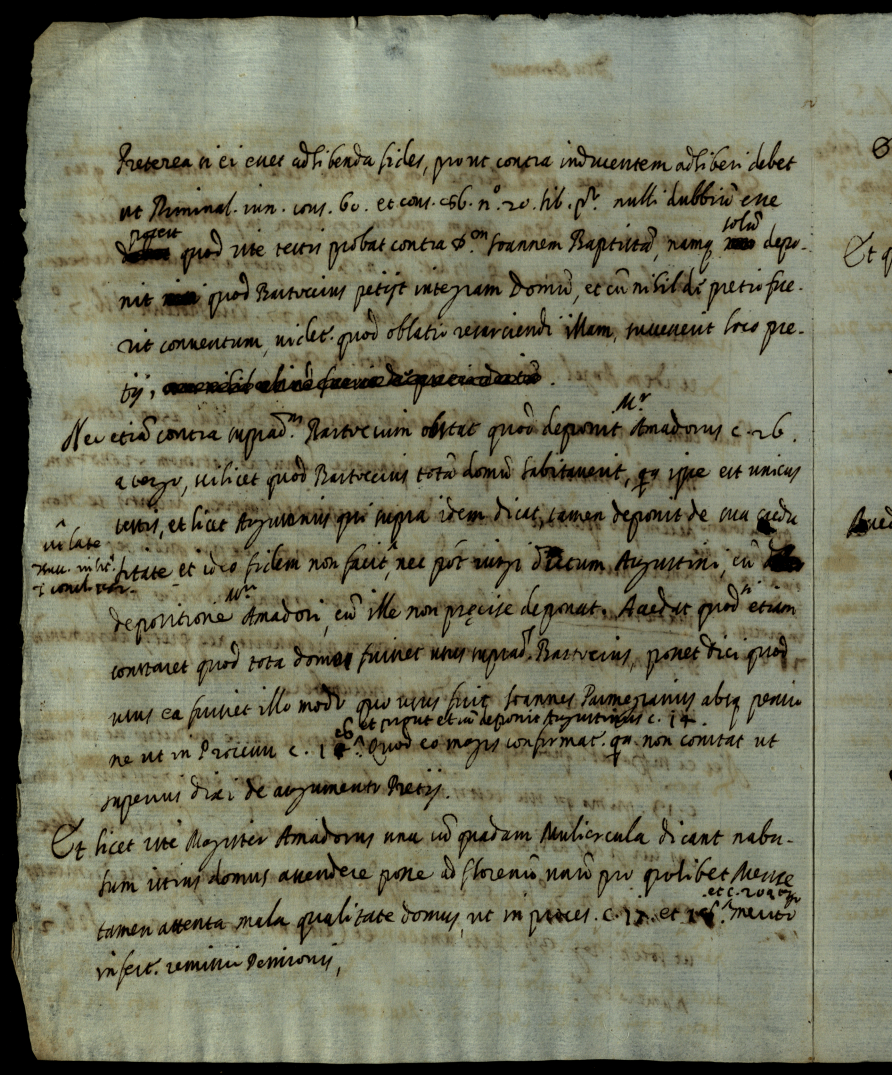 Preterea si ei esset adhibenda fides, prout contra inducentem adhiberi debet
ut Riminal. iun. cons. 60. et cons. 286. n.º 20. lib. p.º nulli dubbiũ esse
potest
quod iste testis probat contra d.ᵐ Ioannem Baptistã, namq; solũ depo-
nit quod Bartoccius petijt integram domũ, et cũ nihil de pretio fue-
rit conventum, videt. quod oblatio resarciendi illam, successerit loco pre-
tij,
Nec etiã contra suprad.ᵐ Bartoccium obstat quod deponit M.ʳ Amadorus c. 26.
a tergo, scilicet quod Bartoccius totã domũ habitaverit, qa ipse est unicus
testis, et licet Augustinus qui supra idem dicat, tamen deponit de sua credu
litate et ideo fidem non facit, nec põt iungi dictum Augustini, cũ
depositione M.ʳⁱ Amadori, cũ ille non precise deponat. Accedat quod si etiam
constaret quod tota domo fuisset usus suprad. Bartoccius, posset dici quod
usus ea fuisset illo modo quo usus fuit Ioannes Parmegianus absq; pensio
ne ut in Processu c. 16. et prout etiã deponit Augustinus c. 14. Quod eo magis confirmat. qa non constat ut
superius dixi de augumento Pretij.
Et licet iste Magister Amadorus una cũ quadam Muliercula dicant usu-
tum istius domus ascendere posse ad florenũ unũ pro quolibet Mense
tamen attenta mala qualitate domus, ut in proces. c. 17. et et c. 20 a tergo merito
infert. remissio Pensionis,